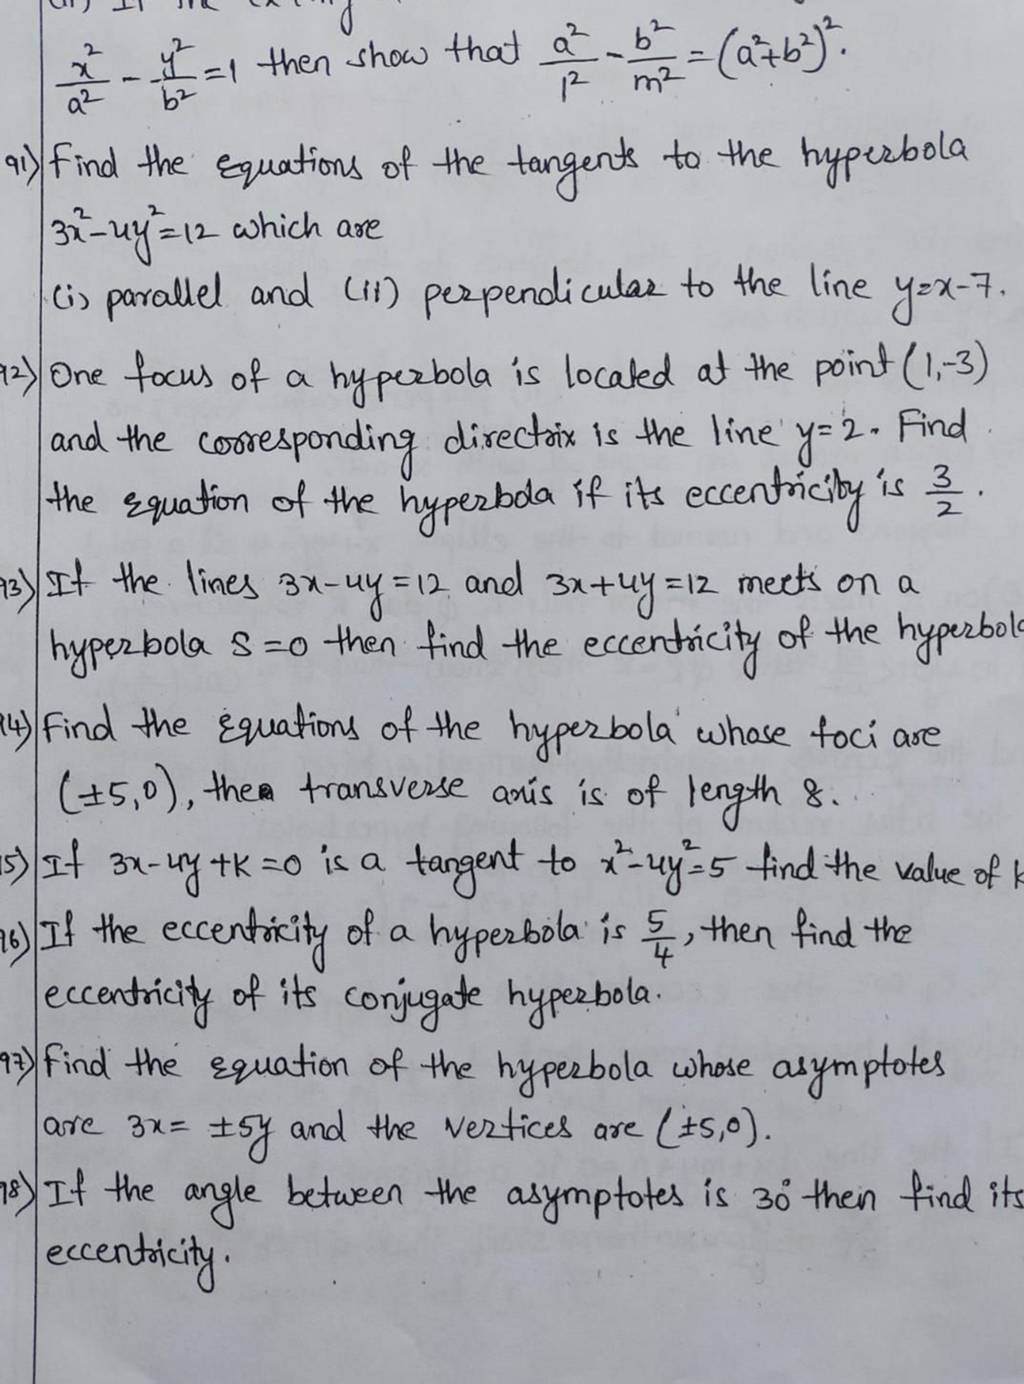 x²/a² - y²/b² = 1 then show that a²/l² - b²/m² = (a²+b²)².
91) Find the equations of the tangents to the hyperbola
3x²-4y²=12 which are
(i) parallel and (ii) perpendicular to the line y=x-7.
92) One focus of a hyperbola is located at the point (1,-3)
and the corresponding directrix is the line y=2. Find
the equation of the hyperbola if its eccentricity is 3/2.
93) If the lines 3x-4y=12 and 3x+4y=12 meets on a
hyperbola S=0 then find the eccentricity of the hyperbola
94) Find the equations of the hyperbola whose foci are
(±5,0), the transverse axis is of length 8.
95) If 3x-4y+k=0 is a tangent to x²-4y²=5 find the value of k
96) If the eccentricity of a hyperbola is 5/4, then find the
eccentricity of its conjugate hyperbola.
97) Find the equation of the hyperbola whose asymptotes
are 3x = ±5y and the vertices are (±5,0).
98) If the angle between the asymptotes is 30° then find its
eccentricity.